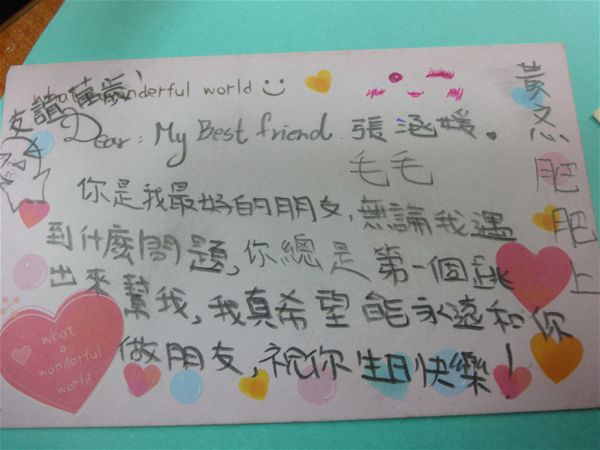 what a wonderful world
友誼萬歲!
Dear: My Best friend 張涵媛.
毛毛
你是我最好的朋友,無論我遇
到什麼問題,你總是第一個跳
出來幫我,我真希望能永遠和你
做朋友,祝你生日快樂!
肥肥上
what
a
wonderful
world